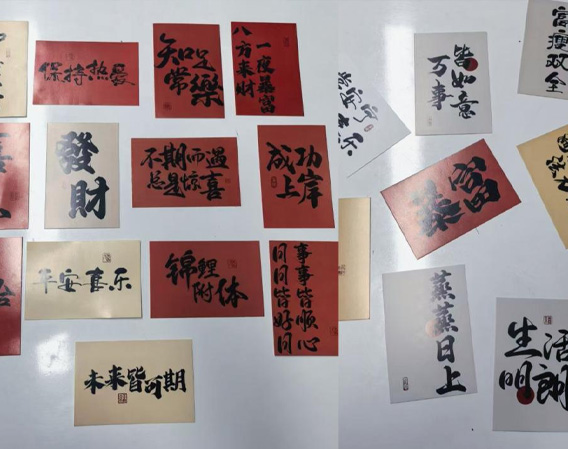 保持热爱
知足
常樂
一夜暴富
八方来财
發
財
不期而遇
总是惊喜
成功
上岸
平安喜乐
锦鲤
附体
事事皆顺心
日日皆好日
未来皆可期
皆如意
万事
富瘦双全
暴富
蒸蒸日上
生活
明朗